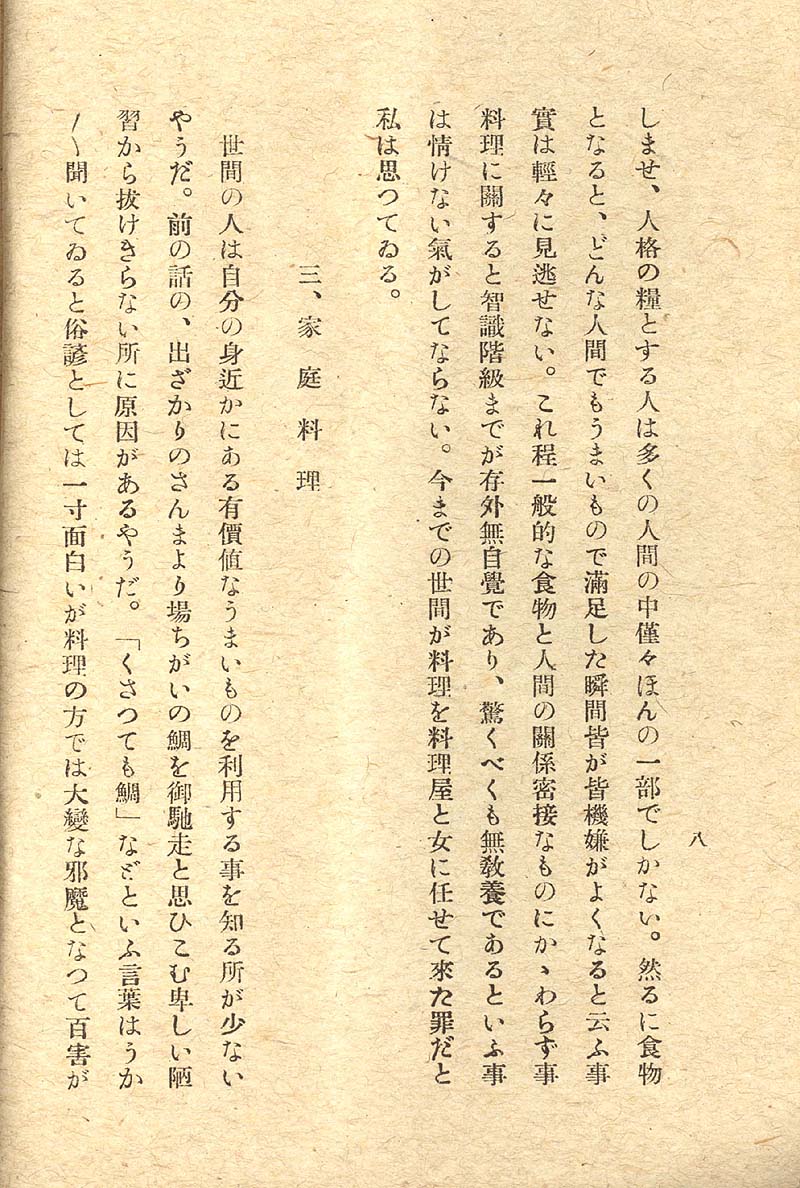 八
しませ、人格の糧とする人は多くの人間の中僅々ほんの一部でしかない。然るに食物
となると、どんな人間でもうまいもので滿足した瞬間皆が皆機嫌がよくなると云ふ事
實は輕々に見逃せない。これ程一般的な食物と人間の關係密接なものにかゝわらず事
料理に關すると智識階級までが存外無自覺であり、驚くべくも無敎養であるといふ事
は情けない氣がしてならない。今までの世間が料理を料理屋と女に任せて來た罪だと
私は思つてゐる。
三、家庭料理
世間の人は自分の身近かにある有價値なうまいものを利用する事を知る所が少ない
やうだ。前の話の、出ざかりのさんまより場ちがいの鯛を御馳走と思ひこむ卑しい陋
習から拔けきらない所に原因があるやうだ。「くさつても鯛」などといふ言葉はうか
〳〵聞いてゐると俗諺としては一寸面白いが料理の方では大變な邪魔となつて百害が